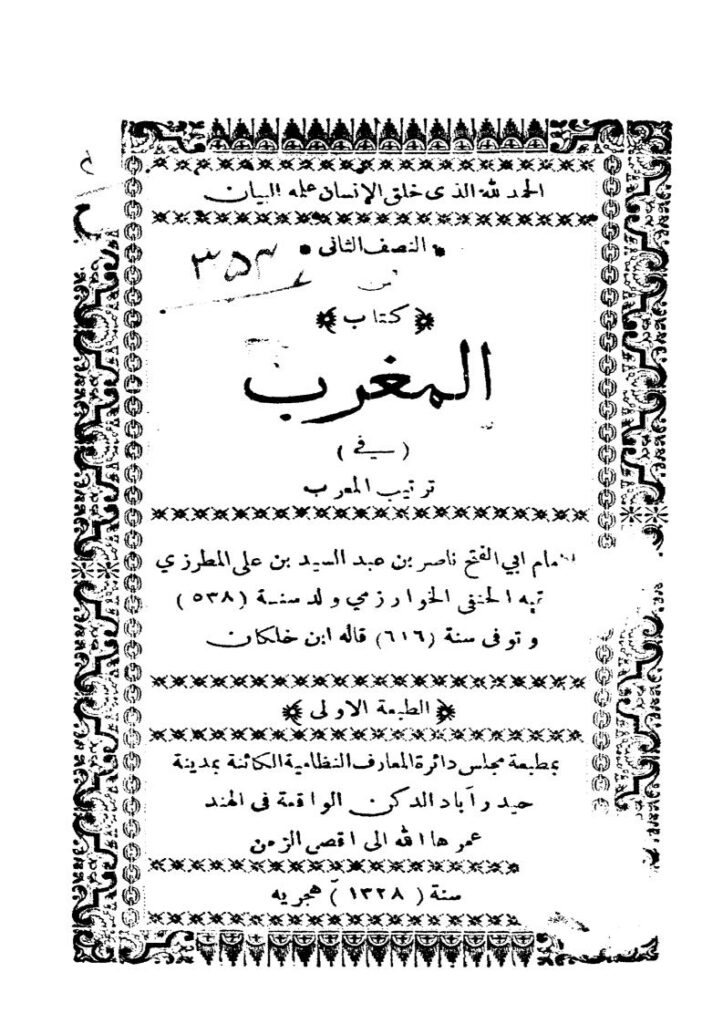 الحمد لله الذى خلق الإنسان علمه البيان
النصف الثانى
٣٥٣
من
كتاب
المغرب
(في)
ترتيب المعرب
ابي الفتح ناصر بن عبد السيد بن على المطرزي
الحنفى الخوارزمي ولد سنة (٥٣٨)
وتوفى سنة (٦١٦) قاله ابن خلكان
الطبعة الاولى
بمطبعة مجلس دائرة المعارف النظامية الكائنة بمدينة
حيدرآباد الدكن الواقعة فى الهند
عمرها الله الى اقصى الزمن
سنة (١٣٢٨) هجريه